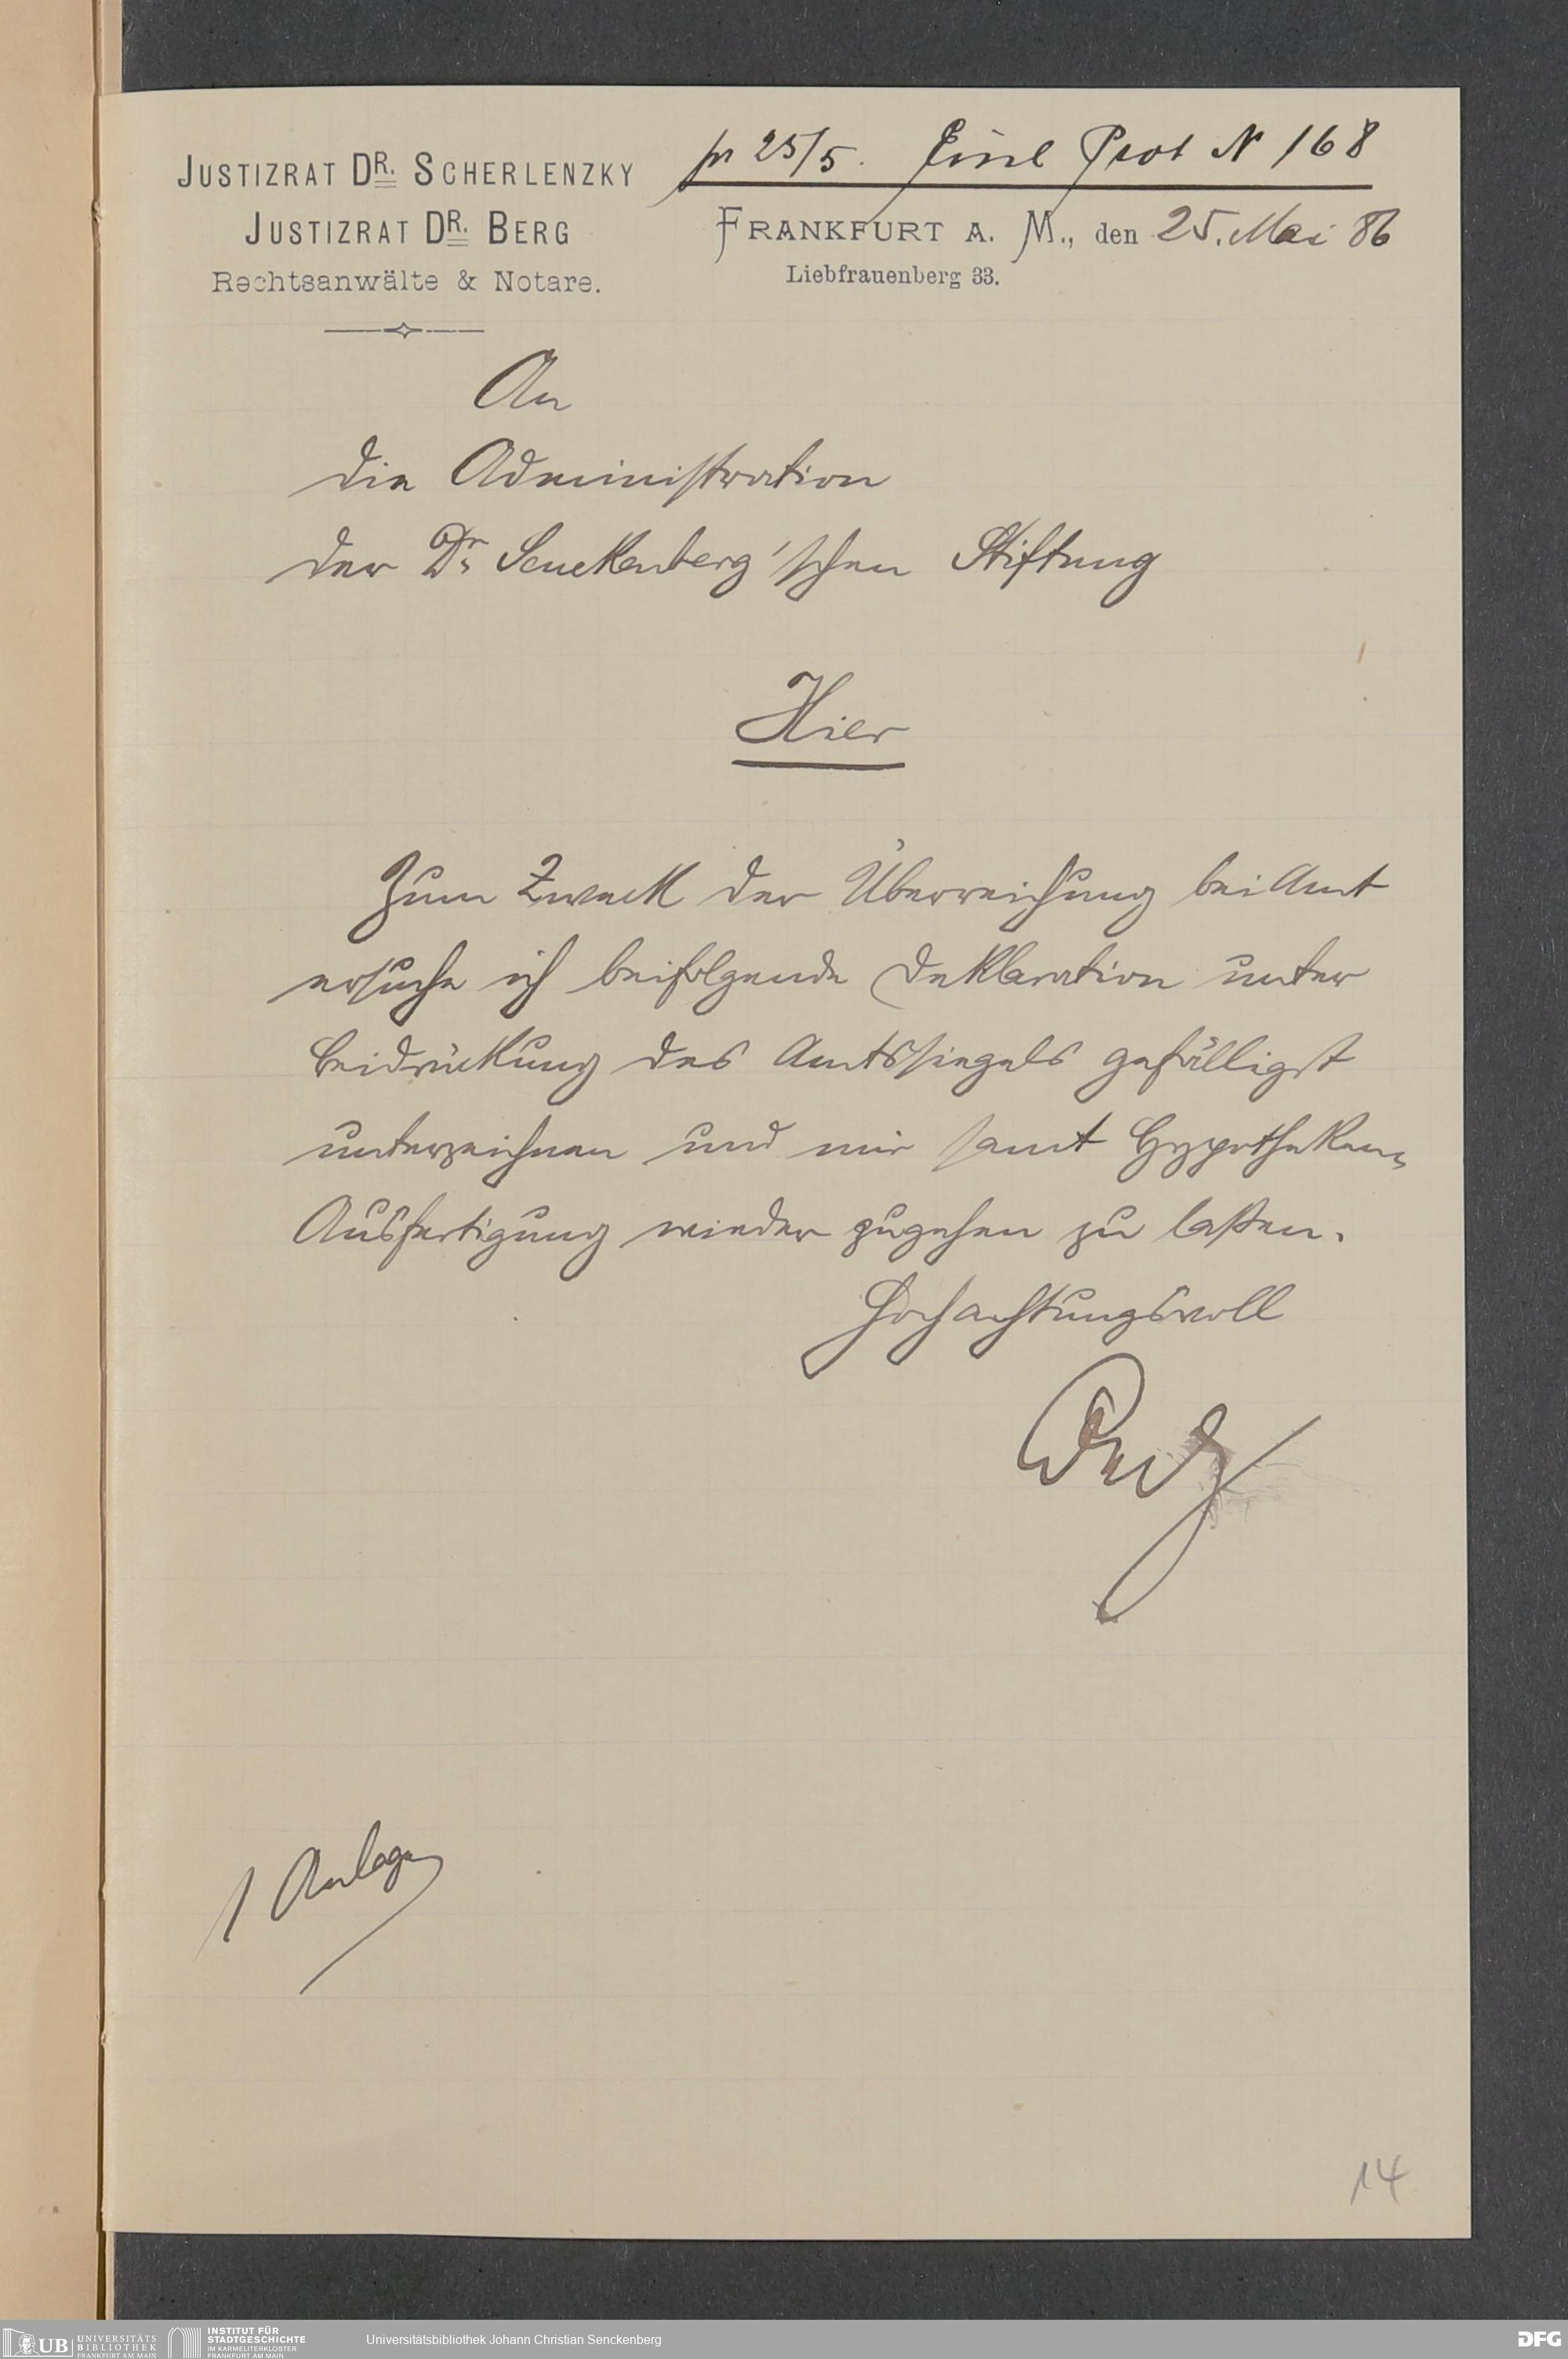 JUSTIZRAT DR. SCHERLENZKY
JUSTIZRAT DR. BERG
Rechtsanwälte & Notare.
pr 25/5. Einl Prot N 168
FRANKFURT A. M., den 25. Mai 86
Liebfrauenberg 33.
An
die Administration
der Dr. Senckenberg'schen Stiftung
Hier
Zum Zweck der Überreichung bei Amt
ersuche ich beifolgende Deklaration unter
Beidrückung des Amtssiegels gefälligst
unterzeichnen und mir samt Hypotheken-
Ausfertigung wieder zugehen zu laßen.
Hochachtungsvoll
Berg
1 Anlage
14
UB UNIVERSITÄTS BIBLIOTHEK FRANKFURT AM MAIN
INSTITUT FÜR STADTGESCHICHTE IM KARMELITERKLOSTER FRANKFURT AM MAIN
Universitätsbibliothek Johann Christian Senckenberg
DFG